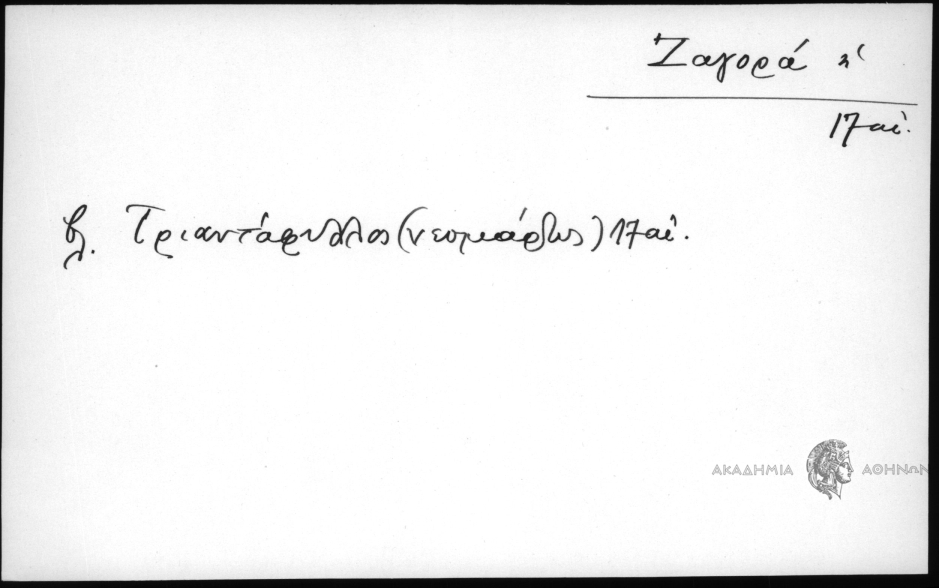 Ζαγορά ἡ
17 αἰ.
βλ. Τριαντάφυλλος (νεομάρτυς) 17 αἰ.
ΑΚΑΔΗΜΙΑ ΑΘΗΝΩΝ